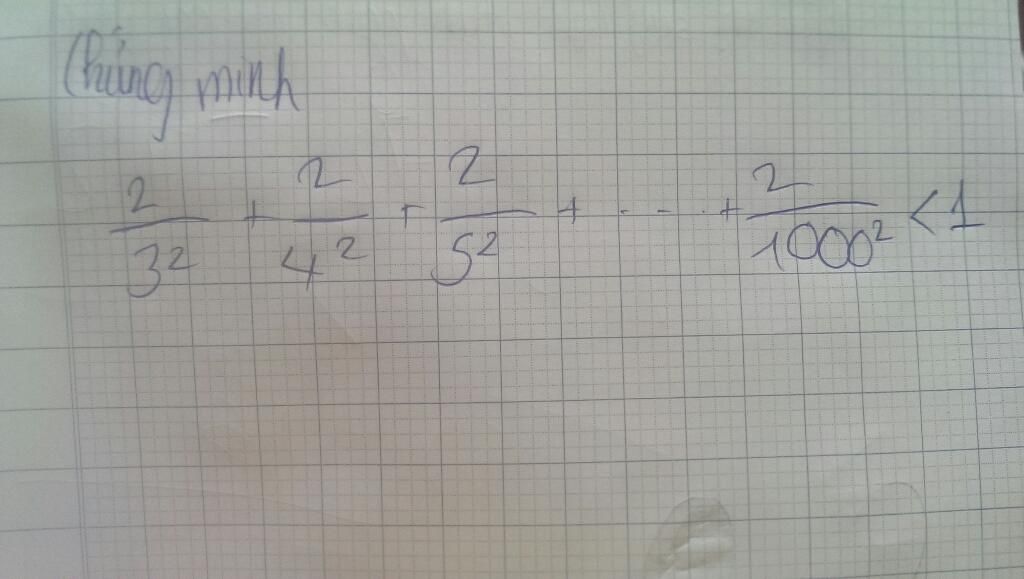 Chứng minh
2/3² + 2/4² + 2/5² + - - . + 2/1000² < 1